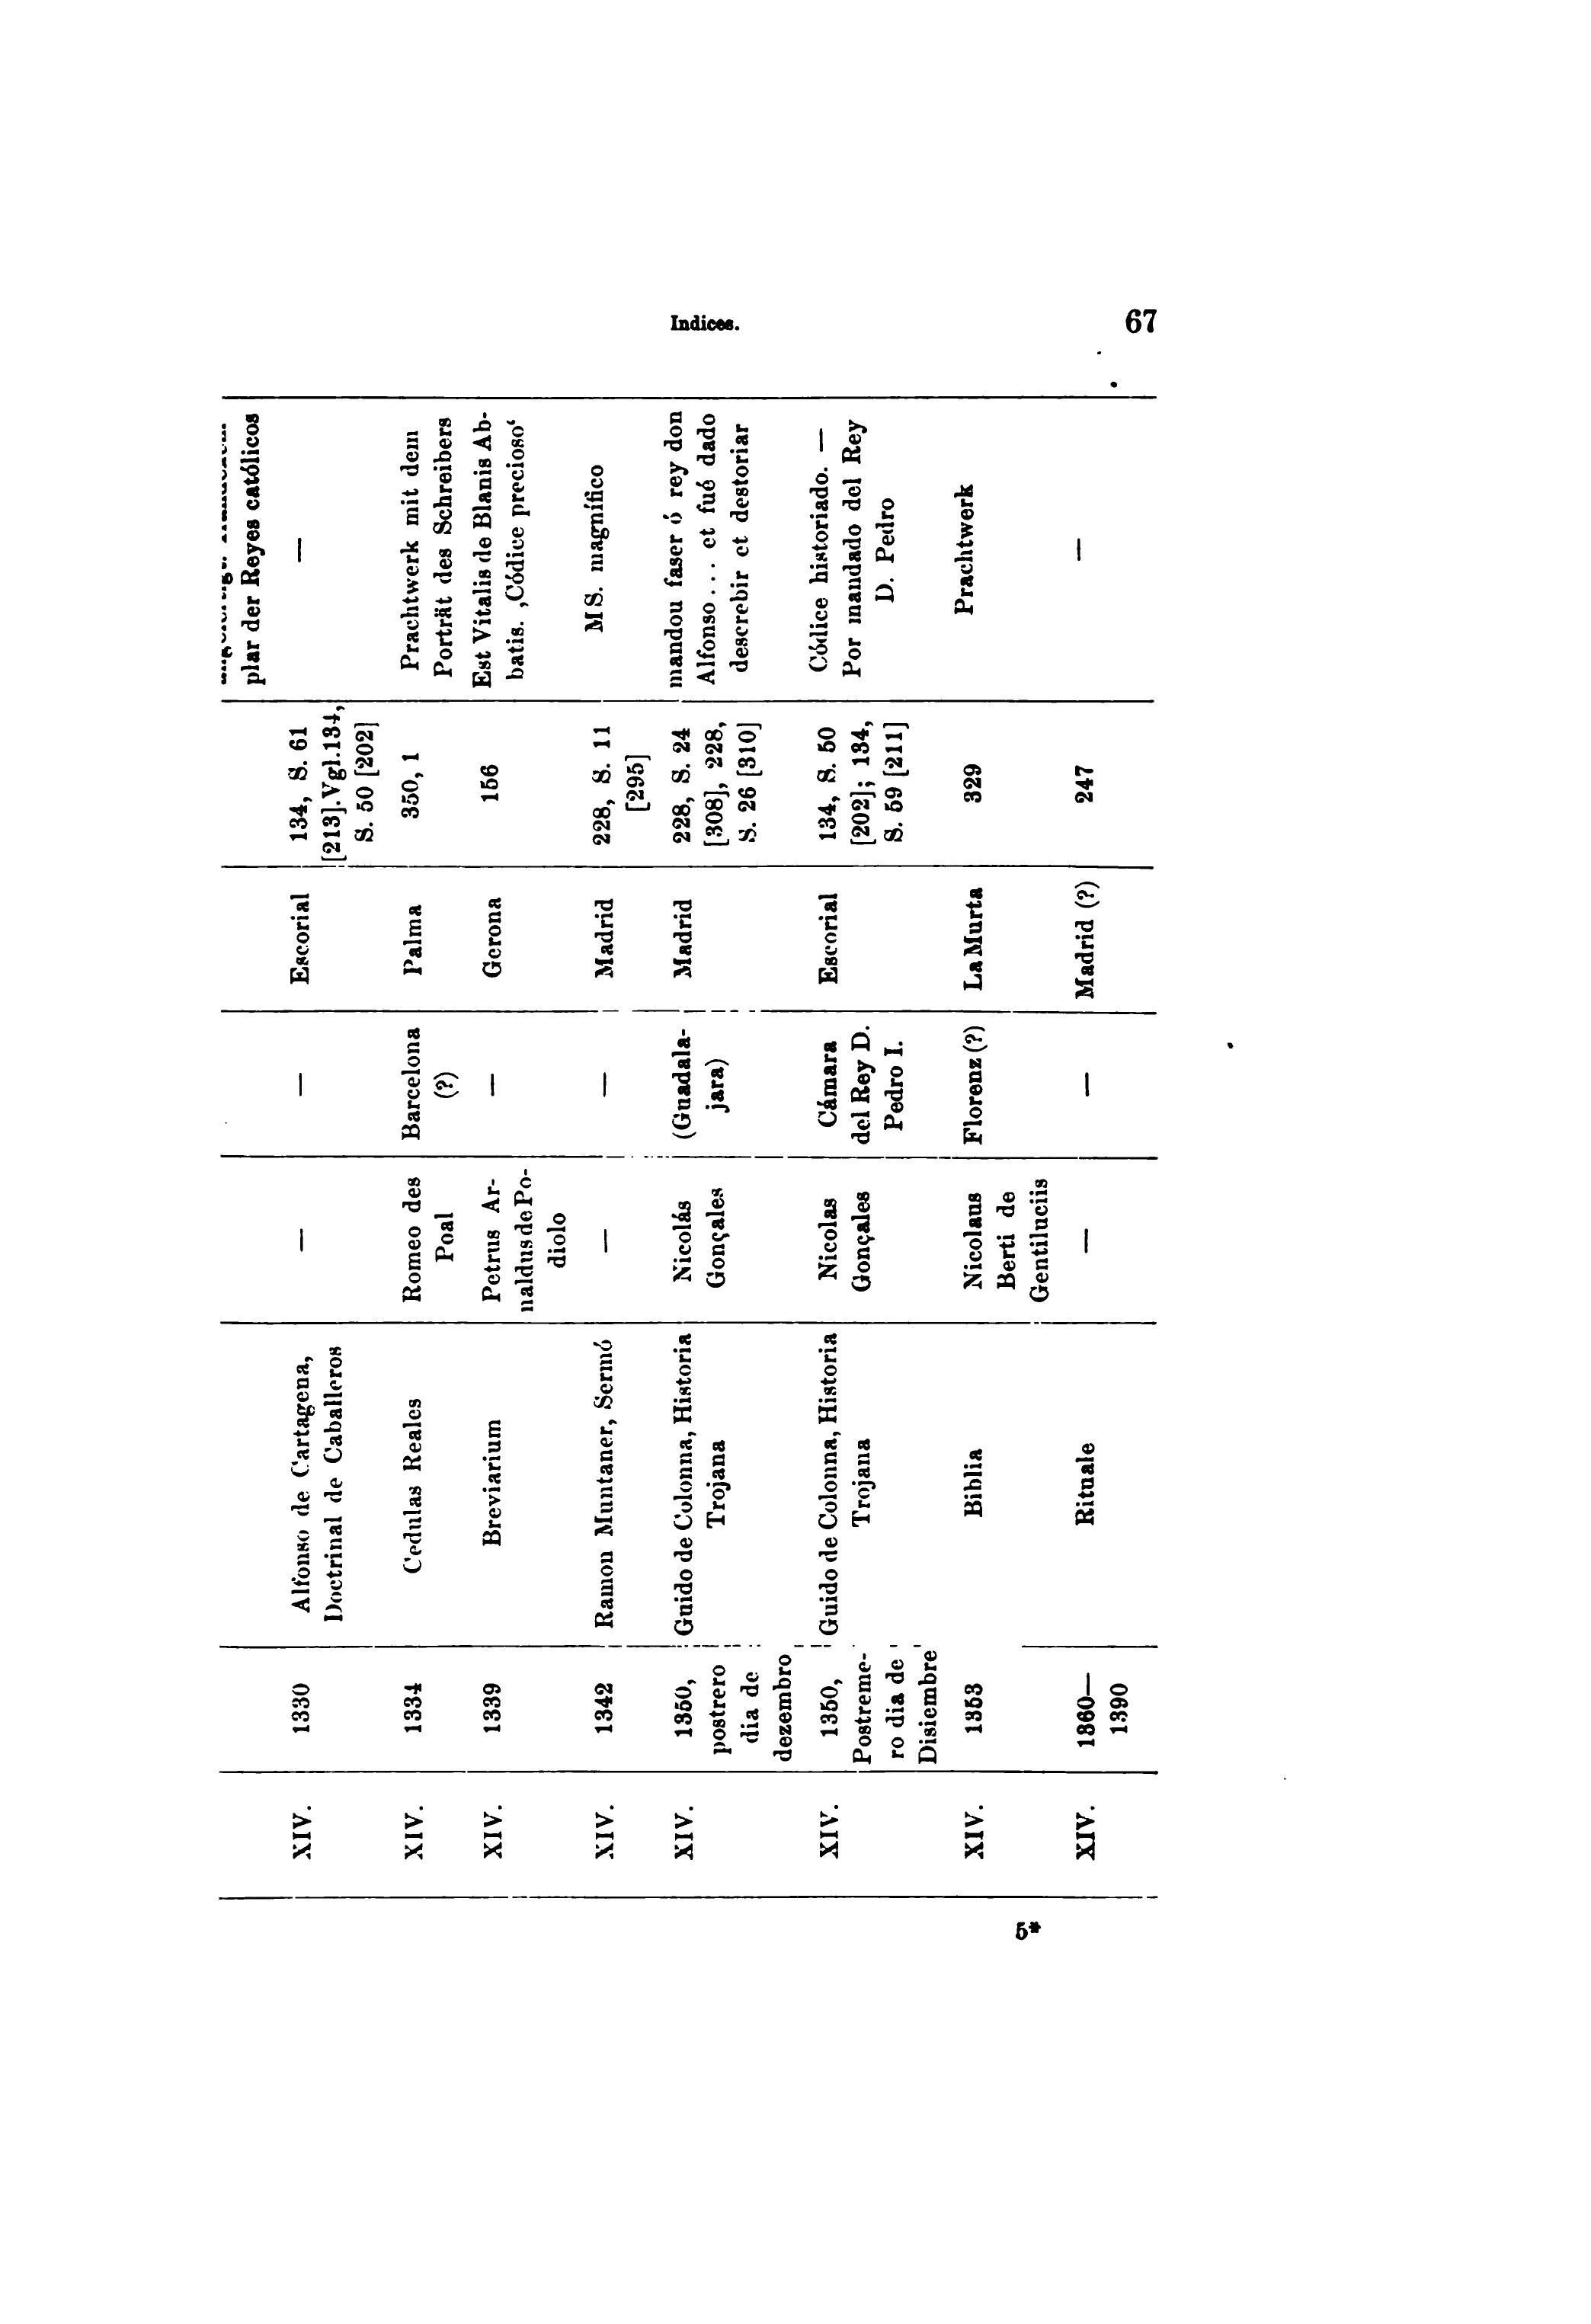 Indices.
67
plar der Reyes católicos
XIV.
1330
Alfonso de Cartagena,
Doctrinal de Caballeros
—
—
Escorial
134, S. 61
[213]. Vgl. 134,
S. 50 [202]
—
XIV.
1334
Cedulas Reales
Romeo des
Poal
Barcelona
(?)
Palma
350, 1
Prachtwerk mit dem
Porträt des Schreibers
XIV.
1339
Breviarium
Petrus Ar-
naldus de Po-
diolo
—
Gerona
156
Est Vitalis de Blanis Ab-
batis. ‚Códice precioso‘
XIV.
1342
Ramon Muntaner, Sermó
—
—
Madrid
228, S. 11
[295]
MS. magnífico
XIV.
1350,
postrero
dia de
dezembro
Guido de Colonna, Historia
Trojana
Nicolás
Gonçales
(Guadala-
jara)
Madrid
228, S. 24
[308], 228,
S. 26 [310]
mandou faser ó rey don
Alfonso... et fué dado
descrebir et destoriar
XIV.
1350,
Postreme-
ro dia de
Disiembre
Guido de Colonna, Historia
Trojana
Nicolas
Gonçales
Cámara
del Rey D.
Pedro I.
Escorial
134, S. 50
[202]; 134,
S. 59 [211]
Códice historiado. —
Por mandado del Rey
D. Pedro
XIV.
1353
Biblia
Nicolaus
Berti de
Gentiluciis
Florenz (?)
La Murta
329
Prachtwerk
XIV.
1360—
1390
Rituale
—
—
Madrid (?)
247
—
5*